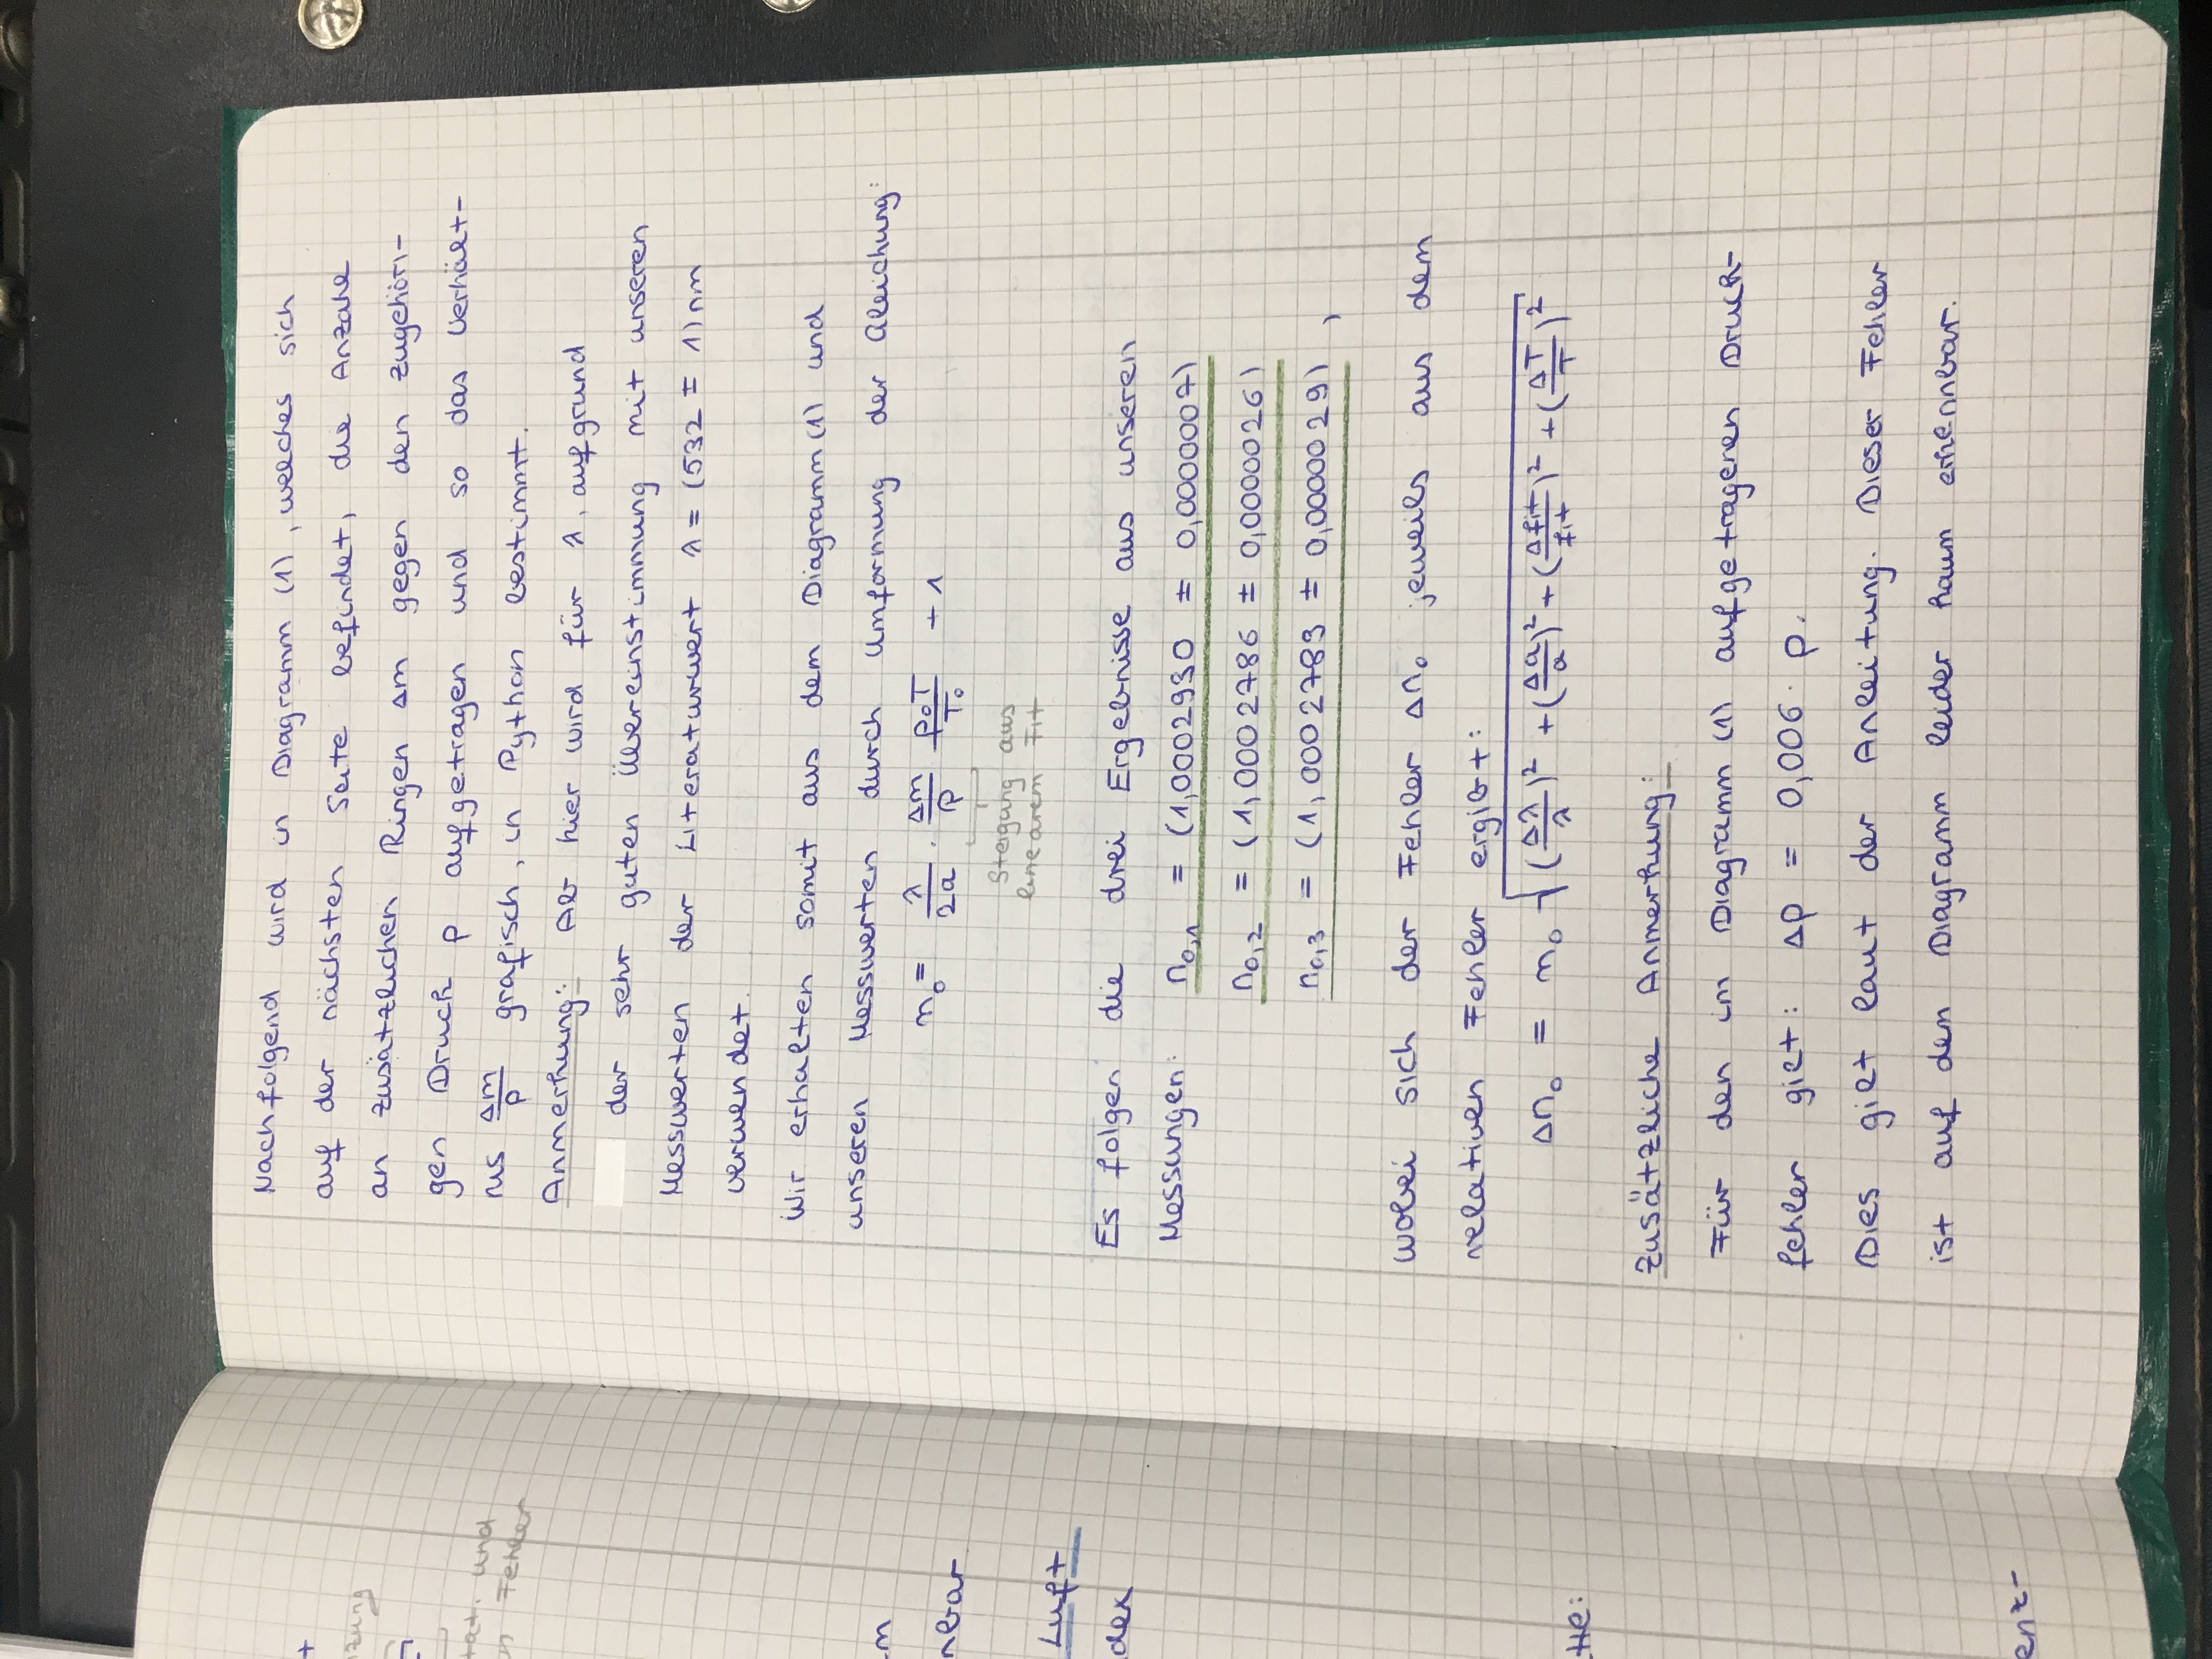 +
zung
tat. und
n Fehler
m
nbar
Luft
dex
tte:
enz-
Nachfolgend wird in Diagramm (1), welches sich
auf der nächsten Seite befindet, die Anzahl
an zusätzlichen Ringen Δm gegen den zugehöri-
gen Druck p aufgetragen und so das Verhält-
nis Δm/p grafisch, in Python bestimmt.
Anmerkung: Ab hier wird für λ, aufgrund
der sehr guten Übereinstimmung mit unseren
Messwerten der Literaturwert λ = (532 ± 1) nm
verwendet.
Wir erhalten somit aus dem Diagramm (1) und
unseren Messwerten durch Umformung der Gleichung:
n₀ = λ/2a · Δm/p p₀T/T₀ + 1
Steigung aus
linearem Fit
Es folgen die drei Ergebnisse aus unseren
Messungen: n₀,₁ = (1,0002930 ± 0,0000007)
n₀,₂ = (1,0002786 ± 0,0000026)
n₀,₃ = (1,0002789 ± 0,0000029) ,
wobei sich der Fehler Δn₀ jeweils aus dem
relativen Fehler ergibt:
Δn₀ = n₀ √((Δλ/λ)² + (Δa/a)² + (Δfit/fit)² + (ΔT/T)²)
Zusätzliche Anmerkung:
Für den im Diagramm (1) aufgetragenen Druck-
fehler gilt: Δp = 0,006 · p.
Dies gilt laut der Anleitung. Dieser Fehler
ist auf dem Diagramm leider kaum erkennbar.